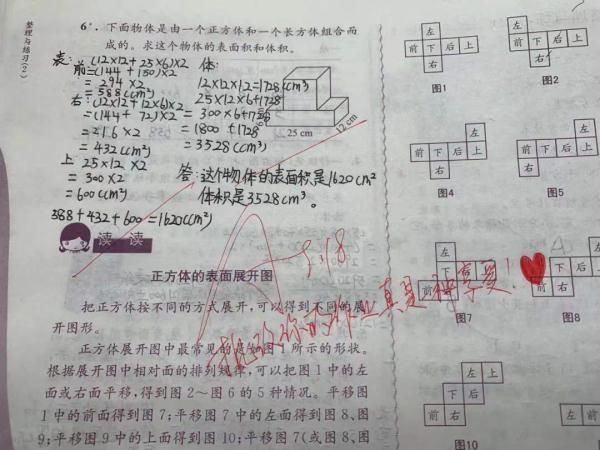 整理与练习(2)
6* . 下面物体是由一个正方体和一个长方体组合而
成的。求这个物体的表面积和体积。
表:
前=(12×12+25×6)×2
=(144+150)×2
=294×2
=588(cm²)
右:(12×12+12×6)×2
=(144+72)×2
=216×2
=432(cm²)
上 25×12×2
=300×2
=600(cm²)
388+432+600=1620(cm²)
体:
12×12×12=1728(cm³)
25×12×6+1728
=300×6+1728
=1800+1728
=3528(cm³)
25 cm
12 cm
答:这个物体的表面积是1620cm²
体积是3528cm³。
读 读
5.18
批改你的作业真是种享受!
正方体的表面展开图
把正方体按不同的方式展开,可以得到不同的展
开图形。
正方体展开图中最常见的是如图 1 所示的形状。
根据展开图中相对面的排列规律,可以把图 1 中的左
面或右面平移,得到图 2~图 6 的 5 种情况。平移图
1 中的前面得到图 7;平移图 7 中的左面得到图 8、图
9;平移图 9 中的上面得到图 10;平移图 7(或图 8、图
左
前 下 后 上
右
图1
左
前 下 后 上
右
图2
左
前 下 后 上
右
图4
左
前 下 后 上
右
图5
左
下 后 上
前 右
图7
左
下
前 右
图8
左
下 后 上
前 右
图10
左
下
前